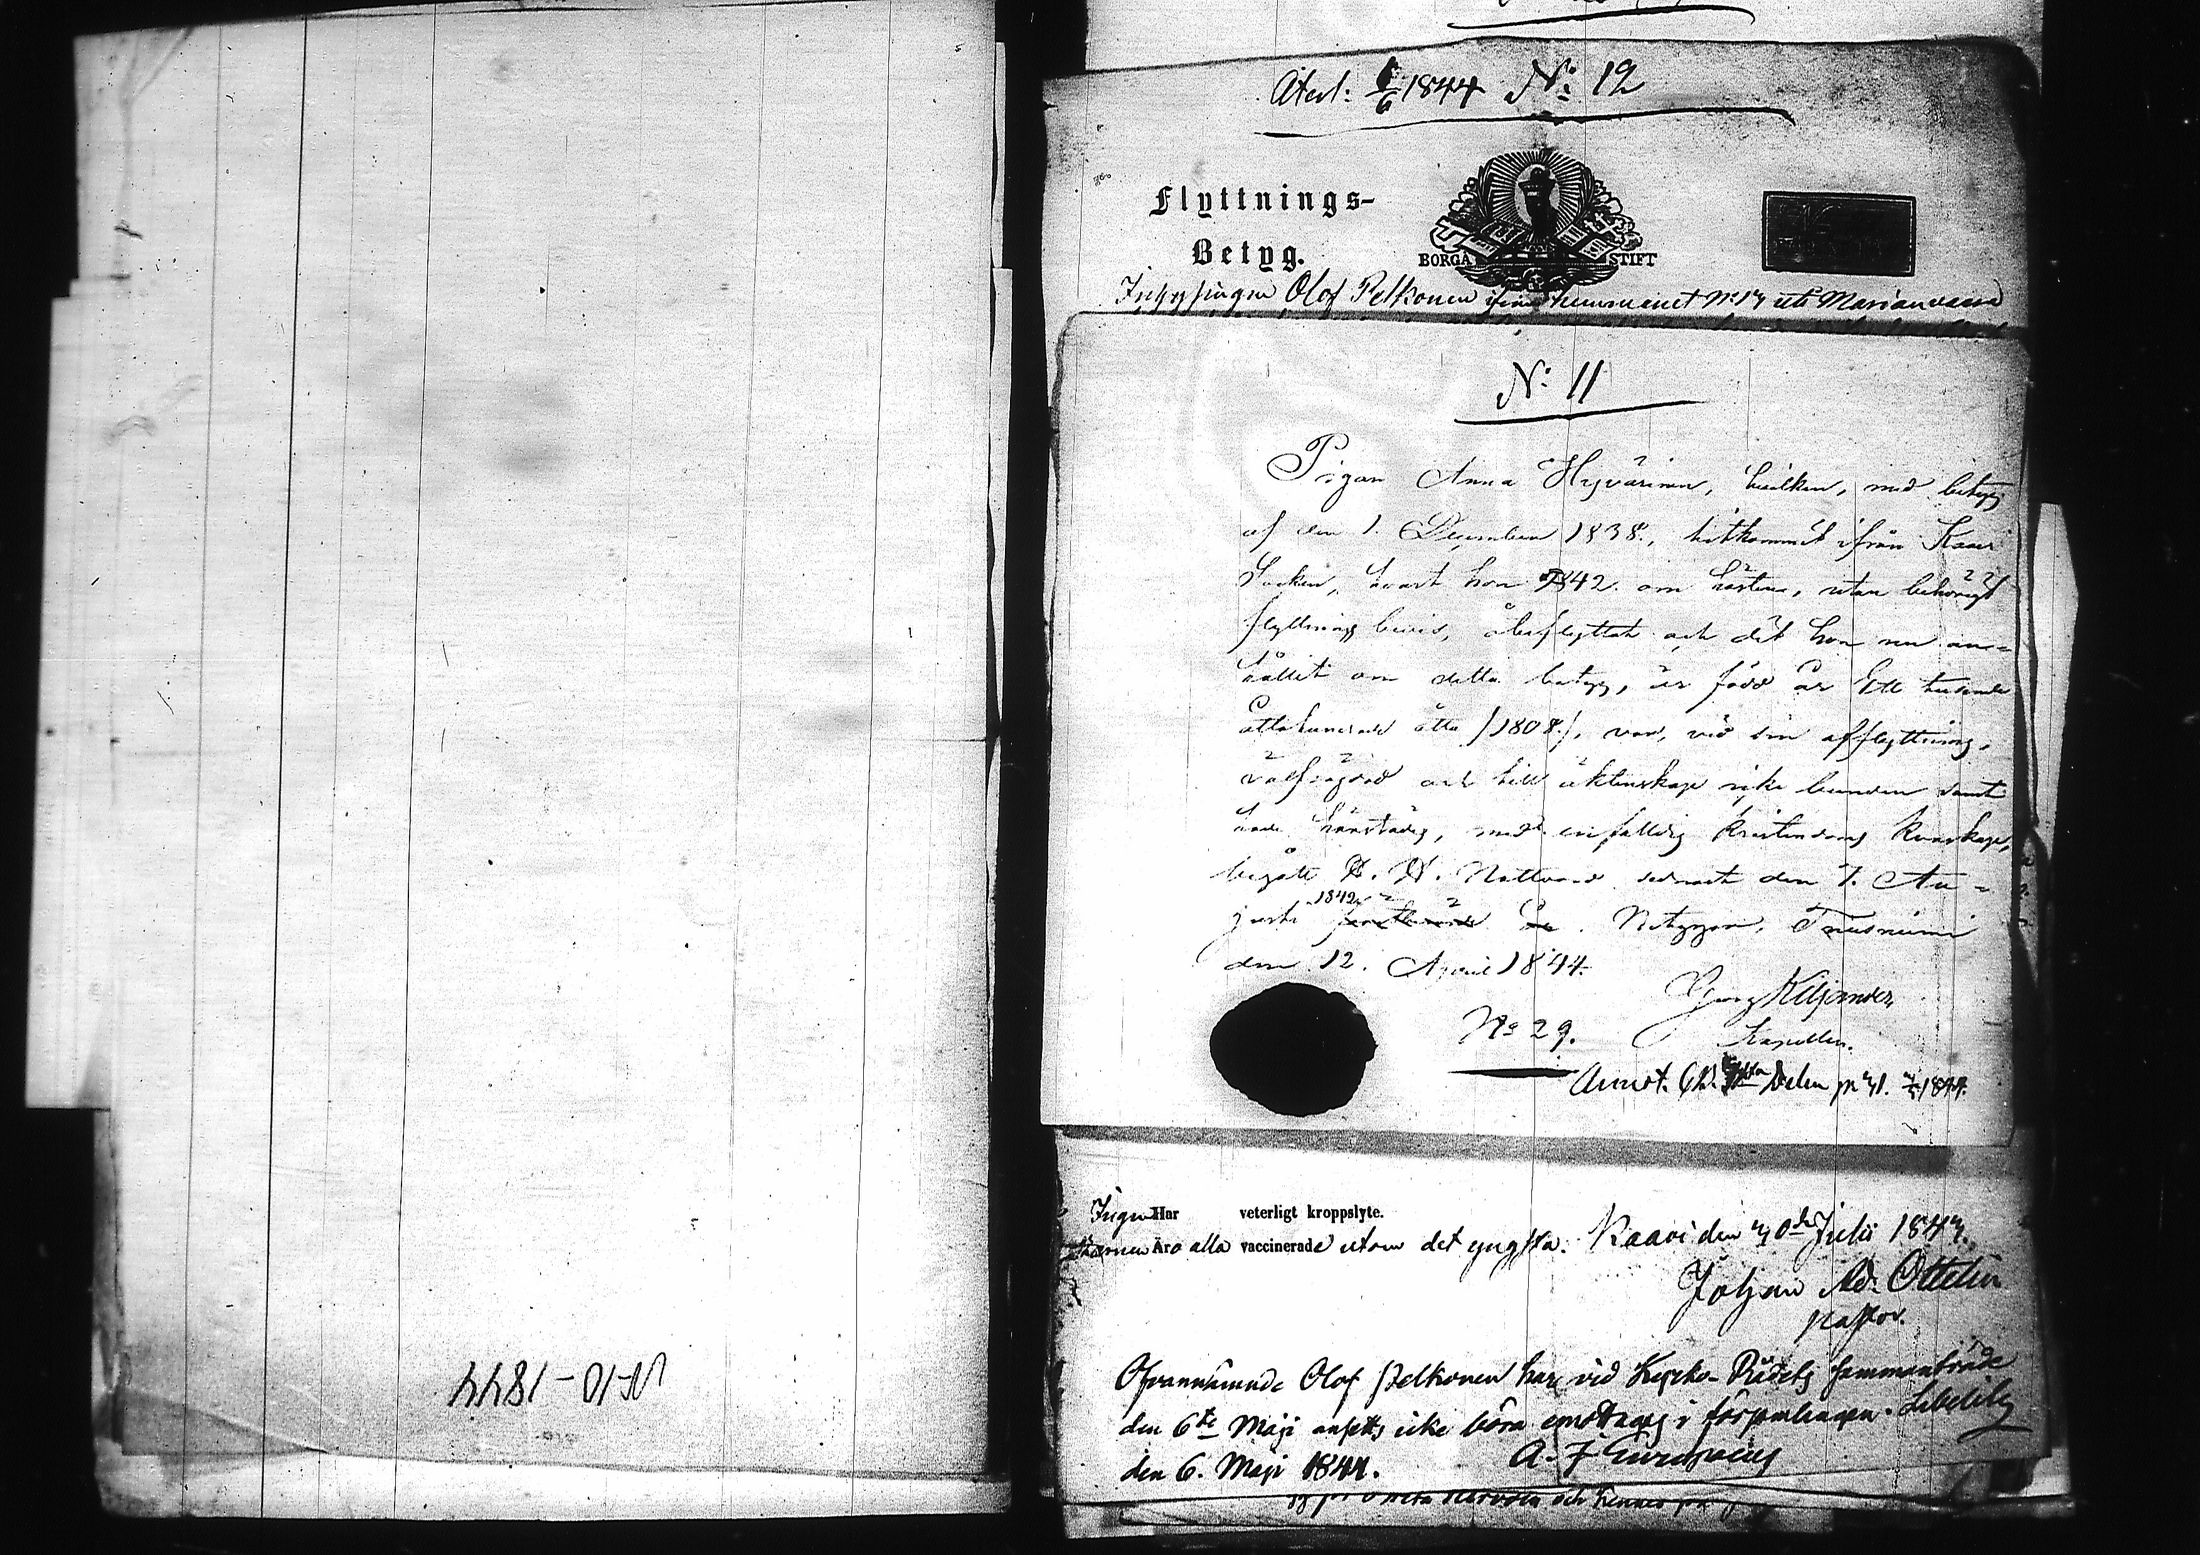 N:10-1844
Återl: 1/6 1844 N: 12
Flyttnings-
Betyg.
BORGÅ STIFT
Inhysingen Olof Pelkonen ifrån hemmanet N:17 uti Marianvaara
N: 11
Pigan Anna Hyvärinen, hvilken, med betyg
af den 1. December 1838., hitkommit ifrån Kaavi
Socken, hvart hon 1842 om hösten, utan behörigt
flyttnings bevis, återflyttat och dit hon nu an-
hållit om detta betyg, är född år Ett tusende
åttahundrade åtta /1808/, var, vid sin afflyttning,
välfrägdad och till äktenskap icke bunden samt
hade härstädes, med enfaldig kristendoms kunskap,
begått H. H. Nattvard sednast den 7. Au-
gusti 1842. Betygar, Tuusniemi
den 12. April 1844.
Georg Kiljander,
Kapellan.
No 29.
Annot. Delen p 1844.
Ingen Har veterligt kroppslyte.
Barnen Äro alla vaccinerade utom det yngsta. Kaavi den 30de Julii 1843.
Johan Ad. Ottelin
pastor.
Ofvannämnde Olof Pelkonen har vid Kyrko-Rådets sammanträde
den 6te Maji ansetts icke böra emottagas i församlingen. Libelits
den 6. Maji 1844.
A. J.
och